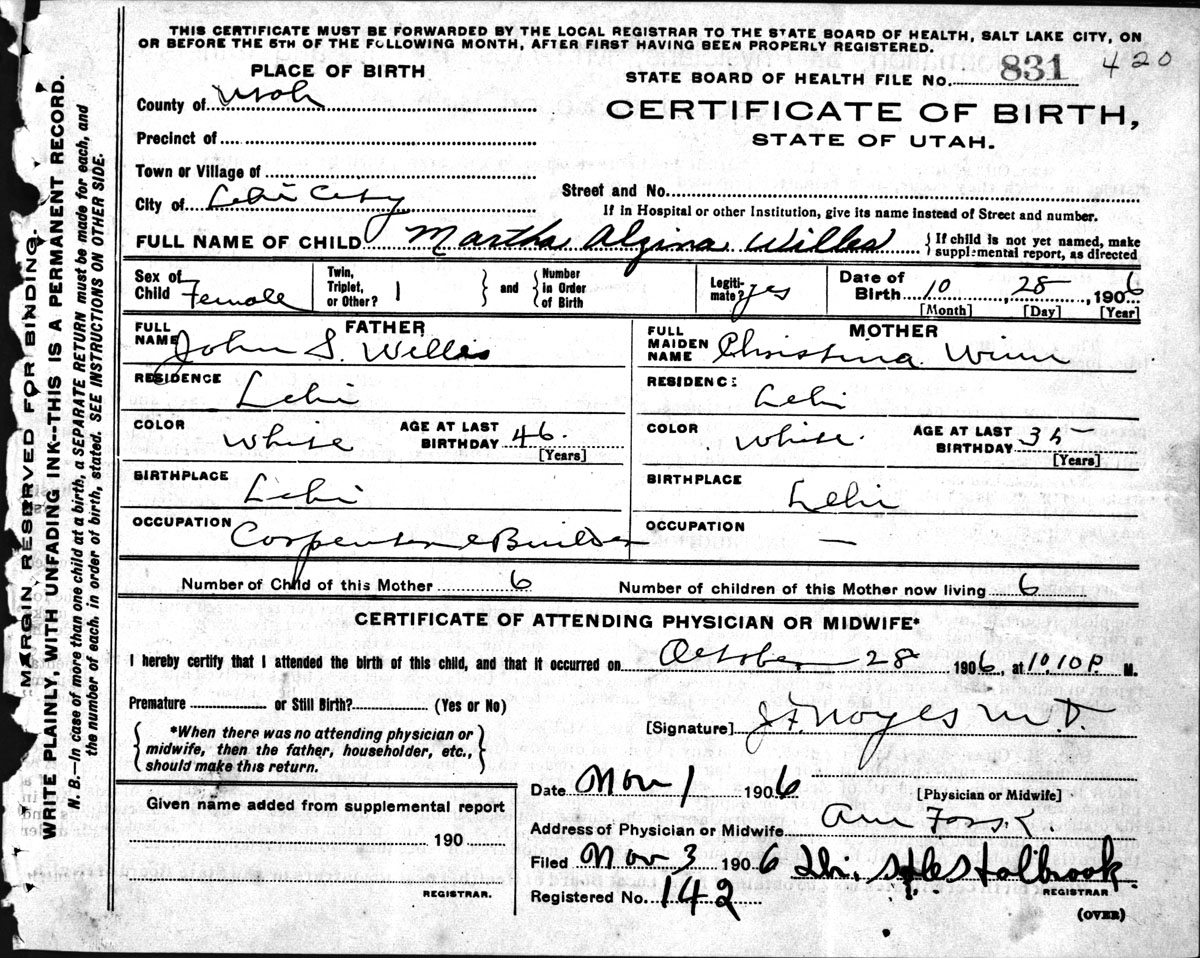 THIS CERTIFICATE MUST BE FORWARDED BY THE LOCAL REGISTRAR TO THE STATE BOARD OF HEALTH, SALT LAKE CITY, ON
OR BEFORE THE 5TH OF THE FOLLOWING MONTH, AFTER FIRST HAVING BEEN PROPERLY REGISTERED.
PLACE OF BIRTH
STATE BOARD OF HEALTH FILE No. 831 420
County of Utah
CERTIFICATE OF BIRTH,
STATE OF UTAH.
Precinct of
Town or Village of
City of Lehi City
Street and No.
If in Hospital or other Institution, give its name instead of Street and number.
FULL NAME OF CHILD Martha Algina Willes { If child is not yet named, make
supplemental report, as directed
Sex of Child Female
Twin, Triplet, or Other? 1 } and { Number in Order of Birth
Legitimate? yes
Date of Birth 10, 28, 1906
[Month] [Day] [Year]
FATHER
FULL NAME John S. Willes
MOTHER
FULL MAIDEN NAME Christina Winn
RESIDENCE Lehi
RESIDENCE Lehi
COLOR White AGE AT LAST BIRTHDAY 46.
[Years]
COLOR White. AGE AT LAST BIRTHDAY 35
[Years]
BIRTHPLACE Lehi
BIRTHPLACE Lehi
OCCUPATION Carpenter & Builder
OCCUPATION —
Number of Child of this Mother 6 Number of children of this Mother now living 6
CERTIFICATE OF ATTENDING PHYSICIAN OR MIDWIFE*
I hereby certify that I attended the birth of this child, and that it occurred on October 28 1906, at 10,10 P. M.
Premature or Still Birth? (Yes or No)
{ *When there was no attending physician or
midwife, then the father, householder, etc.,
should make this return. }
[Signature] J F Noyes M.D.
Date Nov 1 1906
[Physician or Midwife]
Given name added from supplemental report
190
REGISTRAR.
Address of Physician or Midwife Am Fork.
Filed Nov 3 1906 Holbrook.
REGISTRAR
Registered No. 142
(OVER)
MARGIN RESERVED FOR BINDING.
WRITE PLAINLY, WITH UNFADING INK--THIS IS A PERMANENT RECORD.
N. B.—In case of more than one child at a birth, a SEPARATE RETURN must be made for each, and
the number of each, in order of birth, stated. SEE INSTRUCTIONS ON OTHER SIDE.